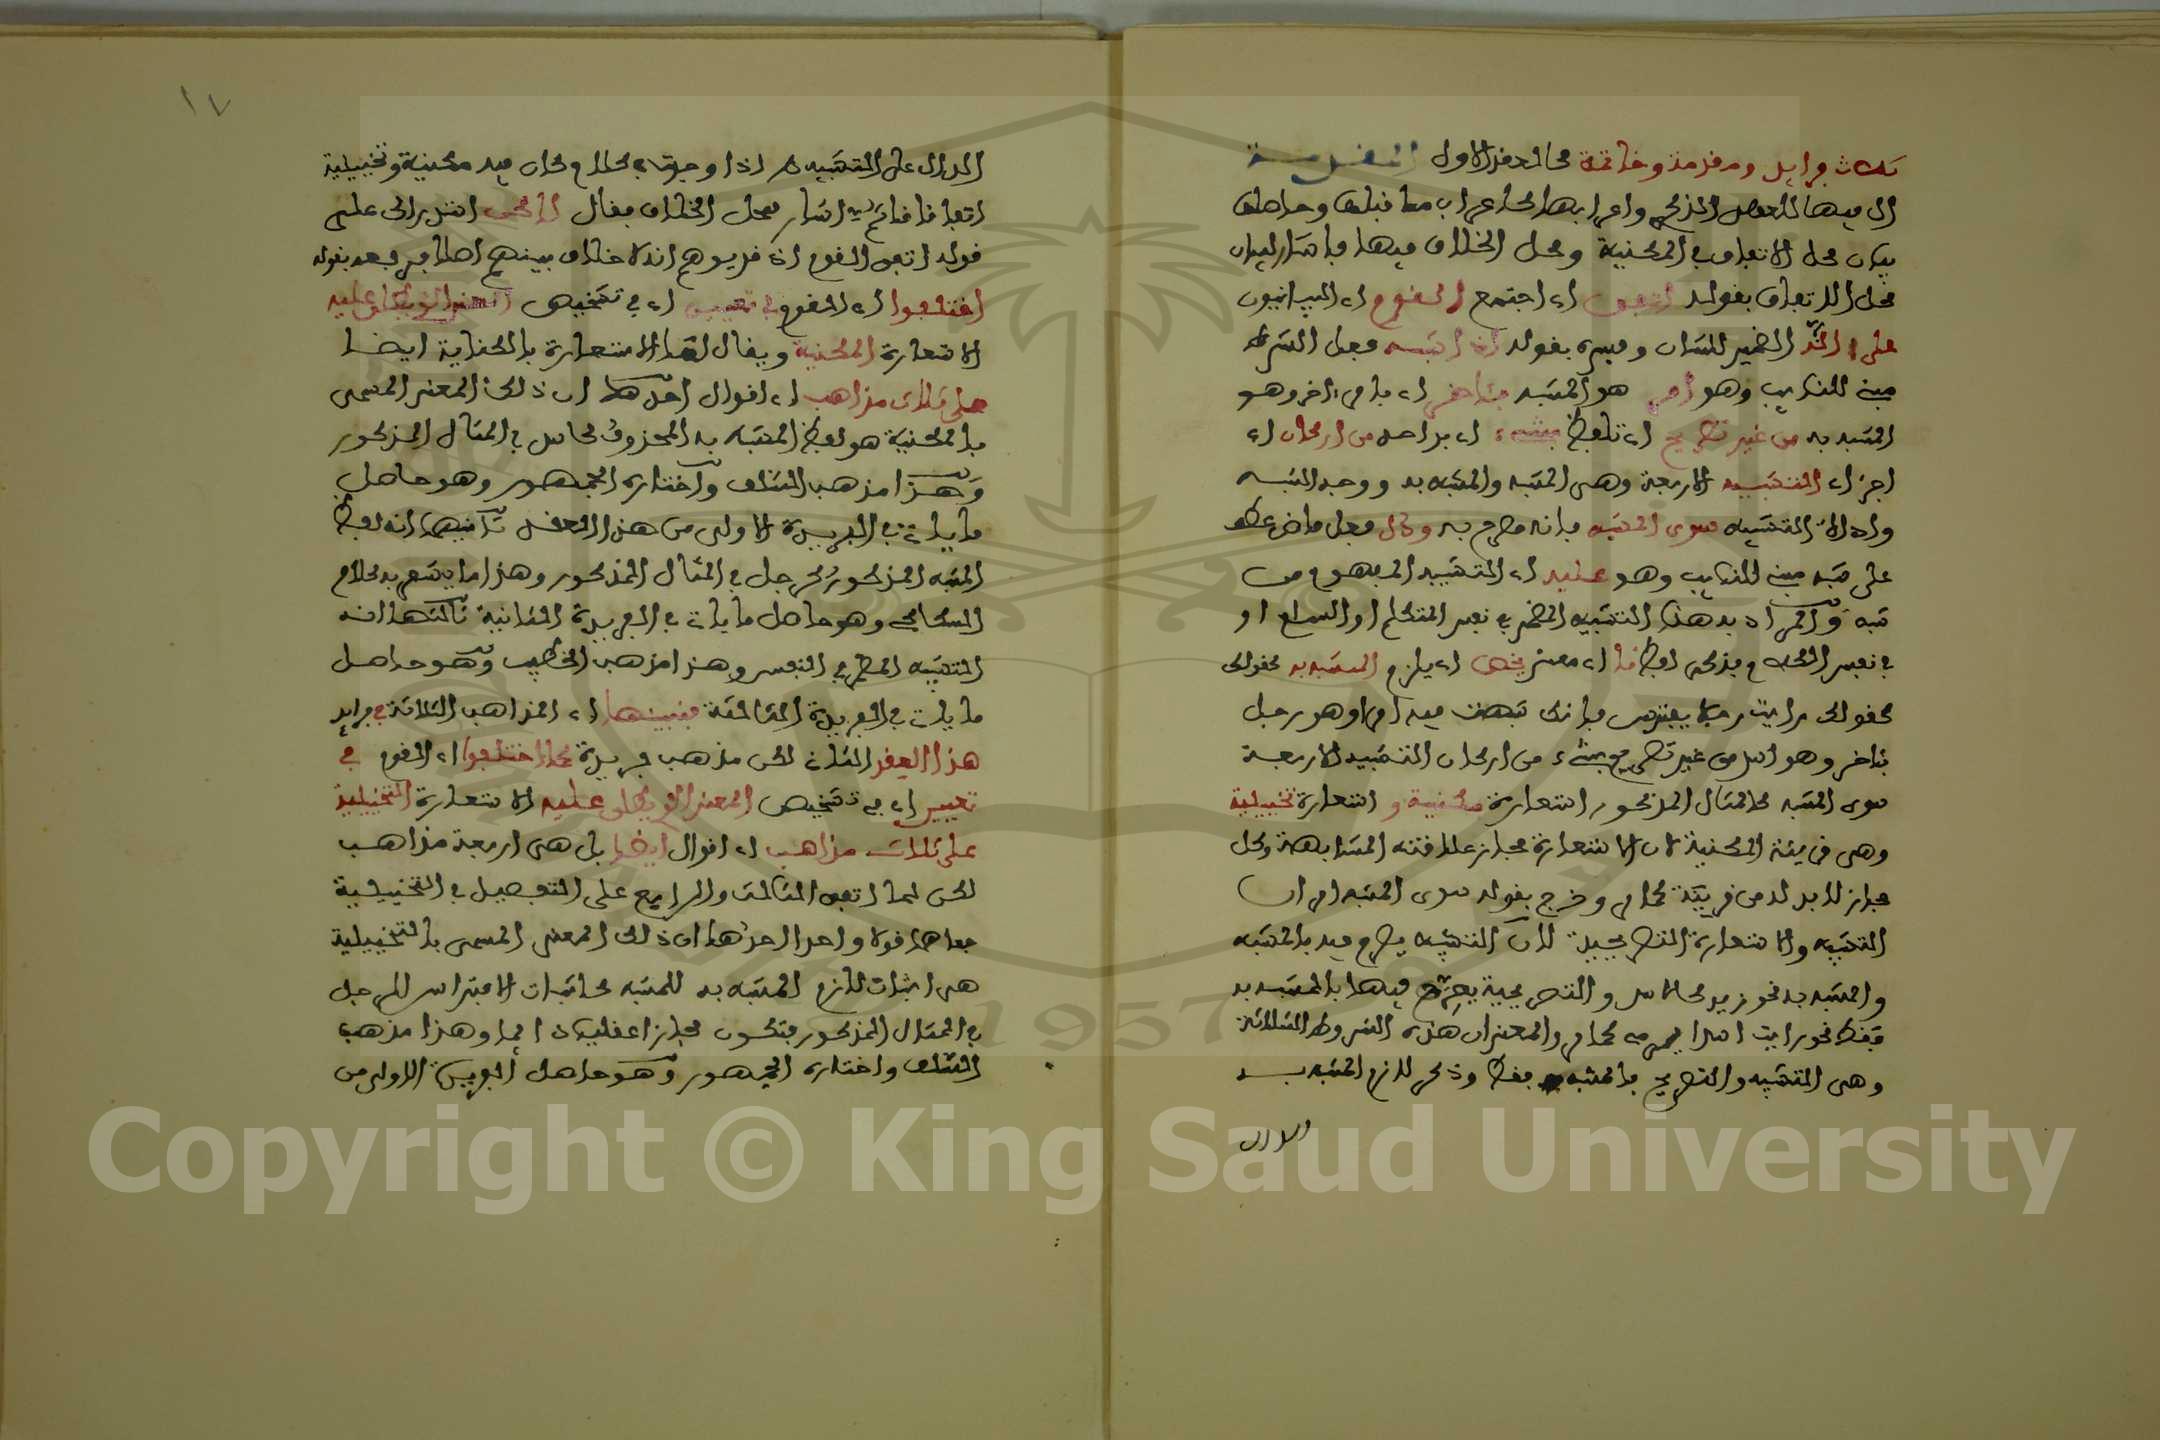 ثلاث فرايد ومقدمة وخاتمة كالعقد الاول المقدمة
ال فيها للعهد الذكري واعرابها كاعراب ما قبلها وحاصلها
بيان محل الاتفاق في المكنية ومحل الخلاف فيها فاشار لبيان
محل الاتفاق بقوله اتفق اي اجتمع القوم اي البيانيون
على انه الضمير للشان وفسره بقوله اذا شبه فعل الشرط
مبني للنايب وهو امر هو المشبه بئاخر اي بامر اخر وهو
المشبه به من غير تصريح اي تلفظ بشيء اي بواحد من اركان اي
اجزاء التشبيه الاربعة وهي المشبه والمشبه به ووجه الشبه
واداة التشبيه سوى المشبه فانه مصرح به ودل فعل ماض عطف
على شبه مبني للنايب وهو عليه اي التشبيه المفهوم من
شبه والمراد بهذا التشبيه المضمر في نفس المتكلم او السامع او
في نفس الكلام بذكر لفظ ما اي معنى يخص اي يلزم المشبه به كقولك
كقولك رايت رجلا يفترس فانك شبهت فيه امرا وهو رجل
بئاخر وهو اسد من غير تصريح بشيء من اركان التشبيه الاربعة
سوى المشبه كالمثال المذكور استعارة مكنية واستعارة تخييلية
وهي قرينة المكنية لان الاستعارة مجاز علاقته المشابهة وكل
مجاز لابد له من قرينة كما مر وخرج بقوله سوى المشبه امران
التشبيه والاستعارة التصريحية لان التشبيه يصرح فيه بالمشبه
والمشبه به نحو زيد كالاسد والتصريحية يصرح فيها بالمشبه به
فقط نحو رايت اسدا يرمي كما مر والمعنى ان هذه الشروط الثلاثة
وهي التشبيه والتصريح بالمشبه فقط وذكر لازم المشبه به
الدال
١٧
الدال على التشبيه اذا وجدت في كلام كان فيه مكنية وتخييلية
اتفاقا فاتم ثم اشار لمحل الخلاف بقال لكن استدراك على
قوله اتفق القوم اذ قد يوهم انه لا خلاف بينهم اصلا فرفعه بقوله
اختلفوا اي القوم في تعيين اي في تشخيص المعنى الذي يطلق عليه
الاستعارة المكنية ويقال لها الاستعارة بالكناية ايضا
على ثلاث مذاهب اي اقوال احدها ان ذلك المعنى المسمى
بالمكنية هو لفظ المشبه به المحذوف كاسد في المثال المذكور
وهذا مذهب السلف واختاره الجمهور وهو حاصل
ما ياتي في الفريدة الاولى من هذا العقد ثانيها انه لفظ
المشبه المذكور كرجل في المثال المذكور وهذا ما يشعر به كلام
السكاكي وهو حاصل ما ياتي في الفريدة الثانية ثالثها انه
التشبيه المضمر في النفس وهذا مذهب الخطيب وهو حاصل
ما ياتي في الفريدة الثالثة فنبينها اي المذاهب الثلاثة في فرايد
هذا العقد الثلاث لكل مذهب فريدة كما اختلفوا اي القوم في
تعيين اي في تشخيص المعنى الذي يطلق عليه الاستعارة التخييلية
على ثلاث مذاهب اي اقوال ايضا بل هي اربعة مذاهب
لكن لما اتفق الثالث والرابع على التفصيل في التخييلية
جعلا قولا واحدا احدها ان ذلك المعنى المسمى بالتخييلية
هي اثبات لازم المشبه به للمشبه كاثبات الافتراس للرجل
في المثال المذكور فتكون مجازا عقليا دايما وهذا مذهب
السلف واختاره الجمهور وهو حاصل الفريدة الاولى من
1957
Copyright © King Saud University